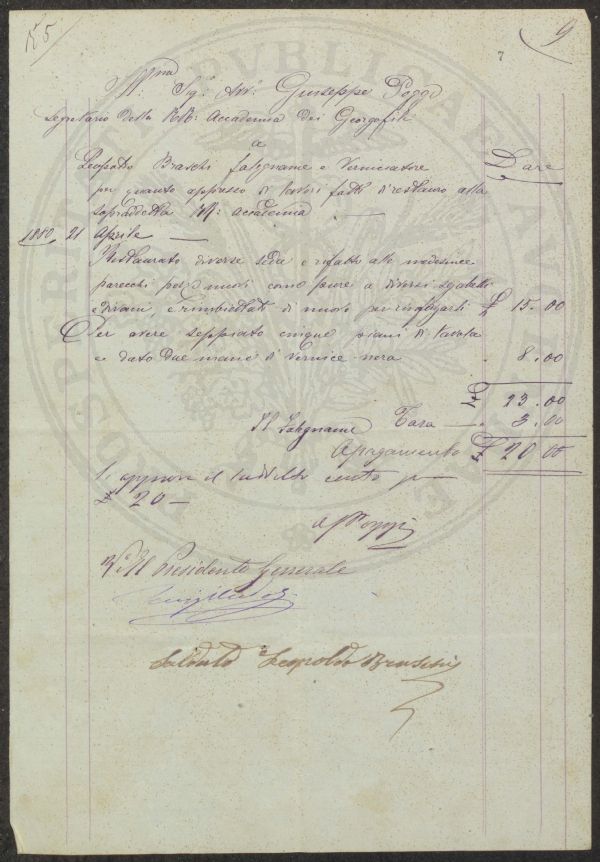 N° 5
9
7
Ill.mo Sig.r Avv.to Giuseppe Poggi
Segretario della R.R. Accademia dei Georgofili
a
Leopoldo Braschi falegname e Verniciatore
Dare
per quanto appresso di lavori fatti di restauro alla
sopraddetta R. accademia
1880, 21 Aprile
Restaurato diverse sedie e rifatto alle medesime
parecchi pezzi nuovi come pure a diversi sgabelli
e divani, di nuovo per £ 15.00
Per avere cinque piani di tavola
e dato due mane di vernice nera 8.00
23.00
Il Falegname Tara 3.00
A pagamento £ 20.00
Si approva il suddetto conto per
£ 20 —
G Poggi
V° Il Presidente Generale
Saldato Leopoldo Braschi